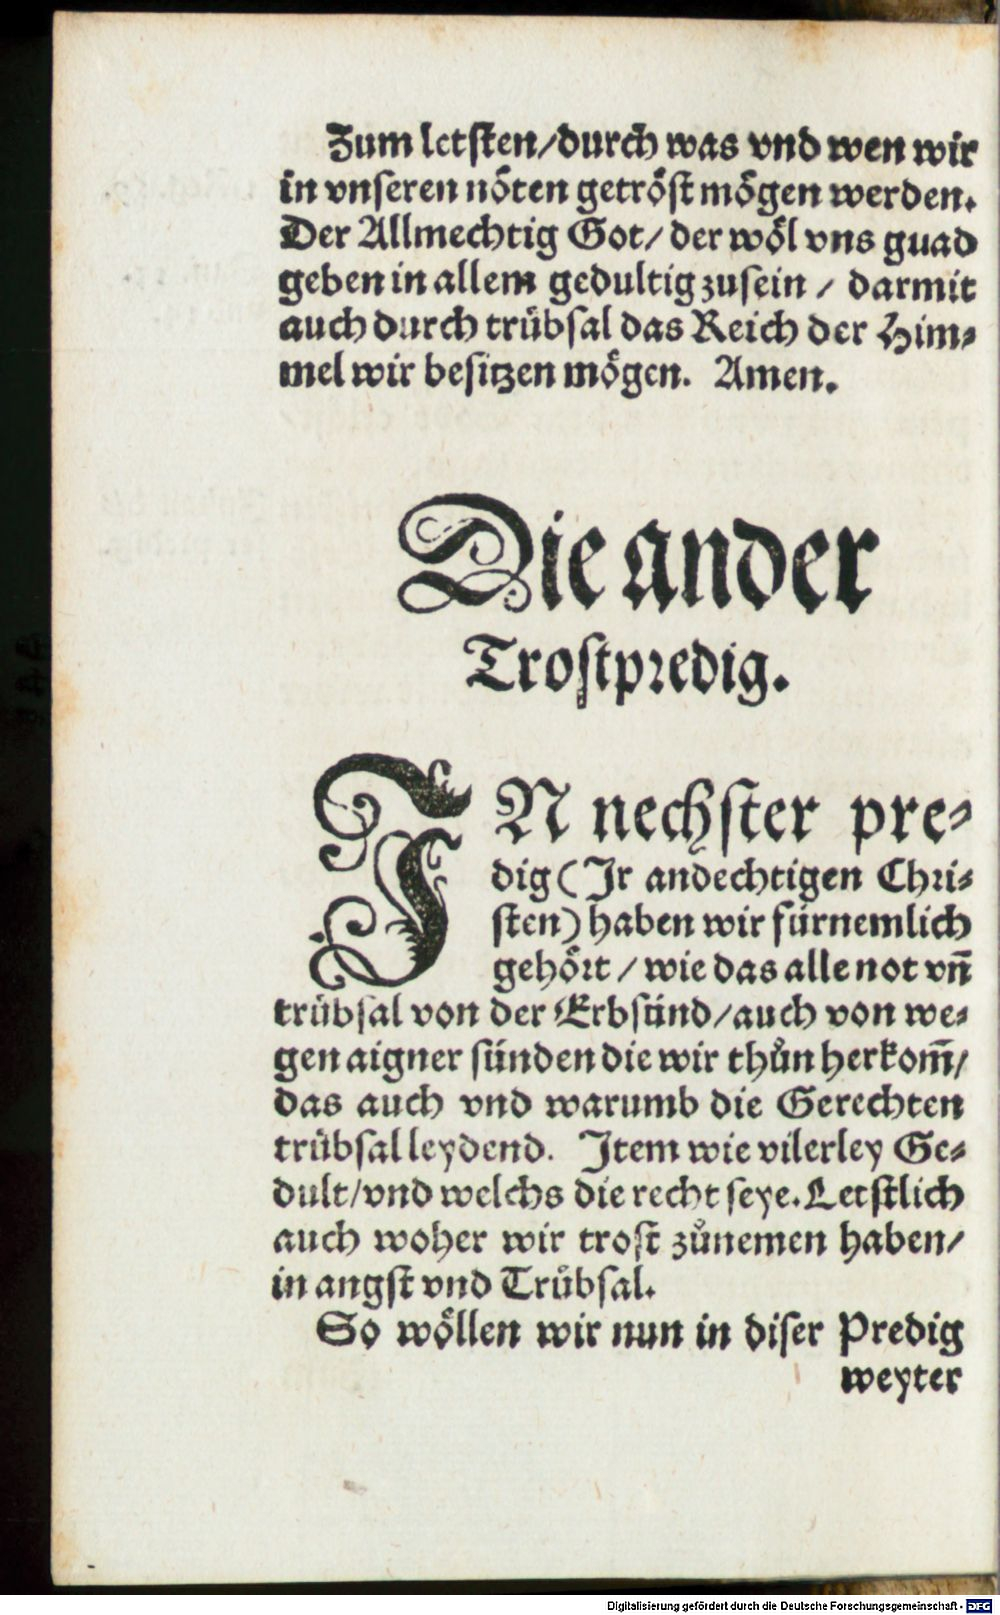 Zum letsten/durch was vnd wen wir
in vnseren nöten getröst mögen werden.
Der Allmechtig Got/ der wöl vns guad
geben in allem gedultig zusein / darmit
auch durch trübsal das Reich der Him⸗
mel wir besitzen mögen. Amen.
Die ander
Trostpredig.
IN nechster pre⸗
dig (Ir andechtigen Chri⸗
sten) haben wir fürnemlich
gehört / wie das alle not vn̄
trübsal von der Erbsünd/auch von we⸗
gen aigner sünden die wir thůn herkom̄/
das auch vnd warumb die Gerechten
trübsal leydend. Item wie vilerley Ge⸗
dult/vnd welchs die recht seye. Letstlich
auch woher wir trost zůnemen haben/
in angst vnd Trübsal.
So wöllen wir nun in diser Predig
weyter
Digitalisierung gefördert durch die Deutsche Forschungsgemeinschaft - DFG